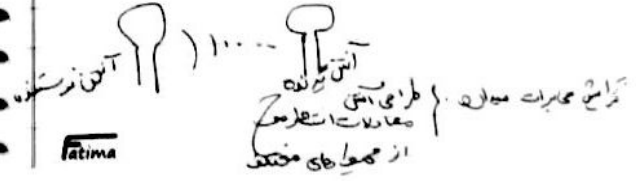 آنتن فرستنده
آنتن گیرنده
گرایش مخابرات میدان { طراحی آنتن
معادلات انتشار موج
از محیط های مختلف
Fatima